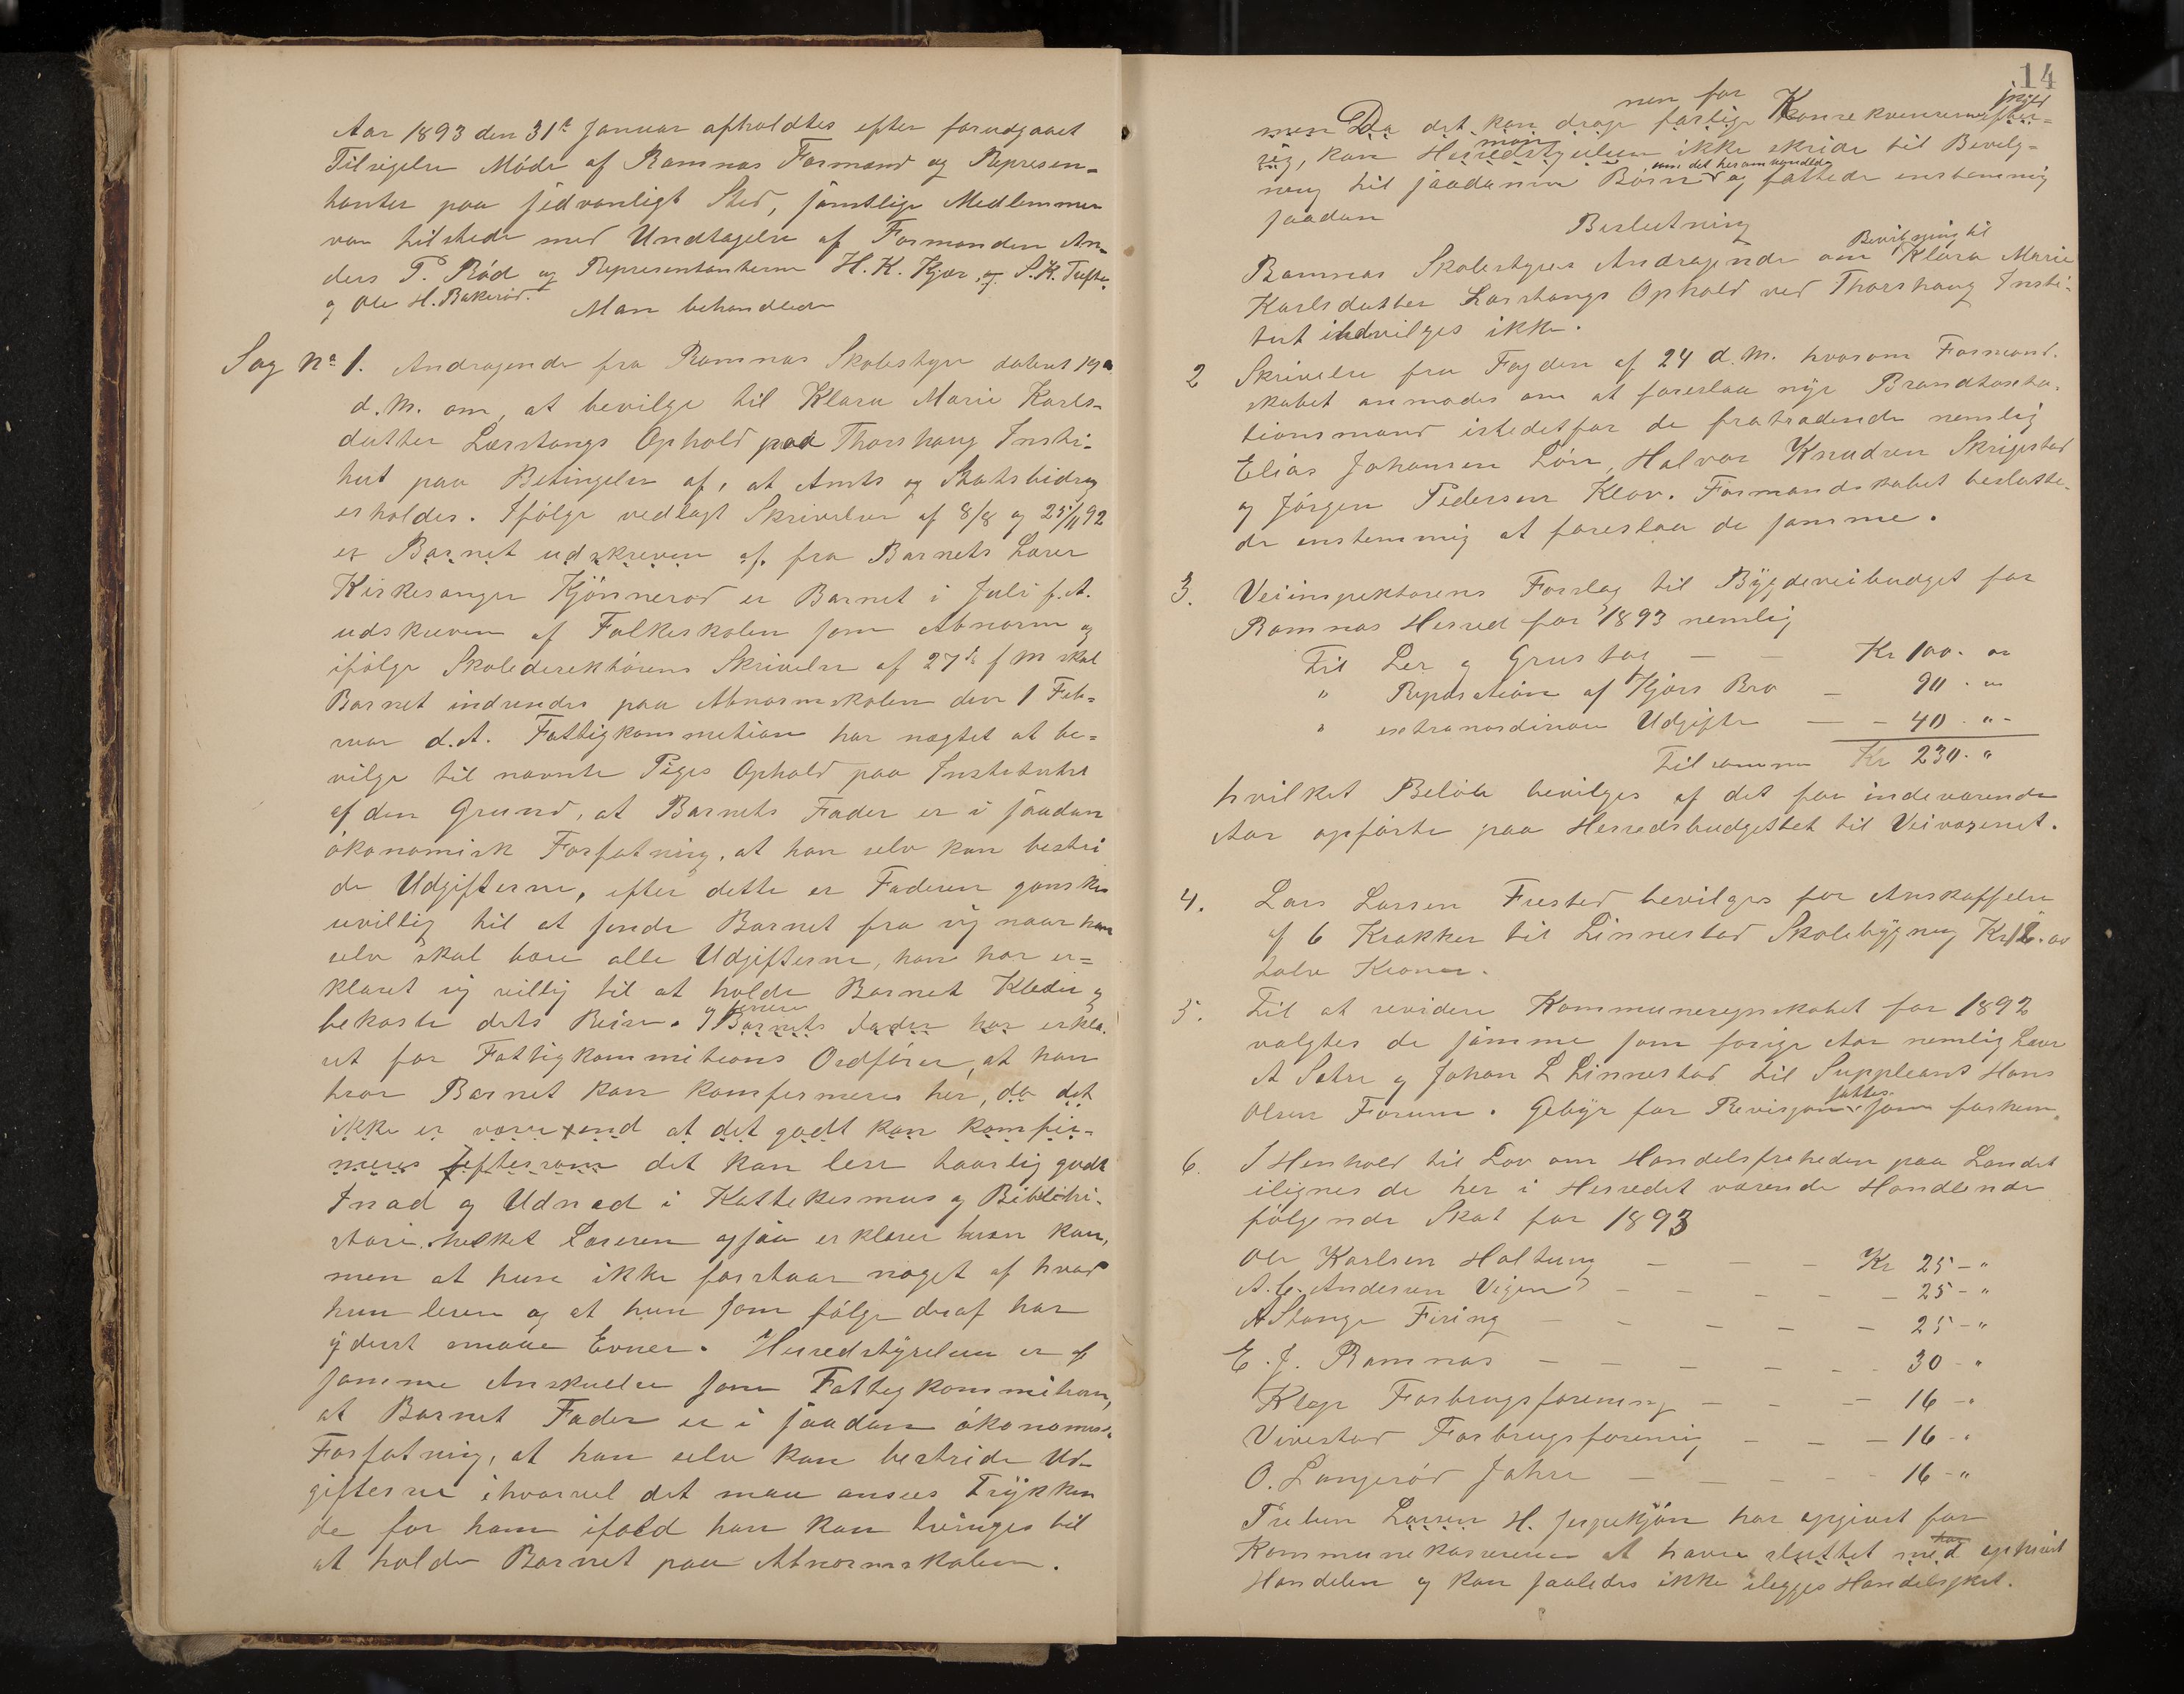 Aar 1893 den 31te Januar afholdtes efter forudgaaet
Tilsigelse Møde af Ramnæs Formænd og Represen-
tanter paa sedvanligt Sted, samtlige Medlemmer
var tilstede med Undtagelse af Formanden An-
ders P. Rød og Representanterne H. K. Kjær, og S. K. Tufte
og Ole H. Bakerød.
Man behandlede
Sag No 1. Andragende fra Ramnæs Skolestyre dateret 19
d.M. om, at bevilge til Klara Marie Karls-
datter Lærstangs Ophold paa Thorshaug Insti-
tut paa Betingelse af, at Amts og Statsbidrag
erholdes. Ifølge vedlagt Skrivelser af 8/8 og 25/11 92
er Barnet udskreven af fra Barnets Lærer
Kirkesanger Kjønnerød er Barnet i Juli f.A.
udskreven af Folkeskolen som Abnorm og
ifølge Skoledirektørens Skrivelse af 27de f M skal
Barnet indsendes paa Abnormskolen den 1 Feb-
ruar d.A. Fattigkommitionen har nægtet at be-
vilge til nævnte Piges Ophold paa Institutet
af den Grund, at Barnets Fader er i saadan
økonomisk Forfatning, at han selv kan bestri
de Udgifterne, efter dette er Faderen ganske
uvillig til at sende Barnet fra sig naar han
selv skal bære alle Udgifterne, han har er-
klæret sig villig til at holde Barnet Klæder og
bekoste dets Reise. og Barnets Fader har erklæ-
ret for Fattigkommitions Ordfører, at han
tror Barnet kan komfermeres her, da det
ikke er værre end at det godt kan komfir-
meres eftersom det kan lese taarlig godt
Inad og Udnad i Kattekesmus og Biblihi-
storie hvilket Læreren ogsaa erklærer hun kan,
men at hun ikke forstaar noget af hvad
hun leser og at hun som følge deraf har
yderst smaae Evner. Herredstyrelsen er af
samme Anskuelse som Fattigkommitionen,
at Barnet Fader er i saadan økonomisk
Forfatning, at han selv kan bestride Ud-
gifterne ihvorvel det maa ansees Trykken
de for ham ifald han kan tvinges til
at holde Barnet paa Abnormskolen.
14
men Da det kan drage farlige Konsekvenser efter
sig, kan Herredstyrelsen ikke skride til Bevilg-
ning til saadanne Børn som det her omhandlede og fattede enstemmig
saadan
Beslutning
Ramnæs Skolestyres Andragende om Bevilgning til Klara Marie
Karlsdatter Lærstangs Ophold ved Thorshaug Insti-
tut indvilges ikke.
2 Skrivelse fra Fogden af 24 d.M. hvorom Formand-
skabet anmodes om at foreslaa nye Brandtaxta-
tionsmænd istedetfor de fratrædende nemlig
Elias Johansen Løn, Halvor Knudsen Skrigestad
og Jørgen Pedersen Klov. Formandskabet beslutte-
de enstemmig at foreslaa de samme.
3. Veiinspektørens Forslag til Bygdeveibudget for
Ramnæs Herred for 1893 nemlig
Til Ler og Grustag — Kr 100. oo
" Reparation af Kjørs Bro — 90. "
" extraordinære Udgifter — 40. "
Tilsammen Kr 230. "
hvilket Beløb bevilges af det for indeværende
Aar opførte paa Herredsbudgettet til Veivæsenet.
4. Lars Larsen Frestad bevilges for Anskaffelse
af 6 Krakker til Linnestad Skolebygning Kr 12. oo
tolv Kroner.
5. Til at revidere Kommuneregnskabet for 1892
valgtes de samme som forige Aar nemlig Laur
A Sætre og Johan L Linnestad til Suppleant Hans
Olsen Forum. Gebyr for Revisjon sættes som forhen.
6. I Henhold til Lov om Handelsfriheden paa Landet
ilignes de her i Herredet værende Handlende
følgende Skat for 1893
Ole Karlsen Holtung — Kr 25 - "
A. C. Andersen Vegger — 25 - "
A Stange Firing — 25 - "
E. J. Ramnæs — 30 - "
Klop Forbrugsforening — 16 - "
Vivestad Forbrugsforening — 16 - "
O. Langerød Jahre — 16 - "
Preben Larsen H. har opgivet for
Kommunekassereren at have sluttet med ophørt
Handelen og kan saaledes ikke ilegges Handelsskat.